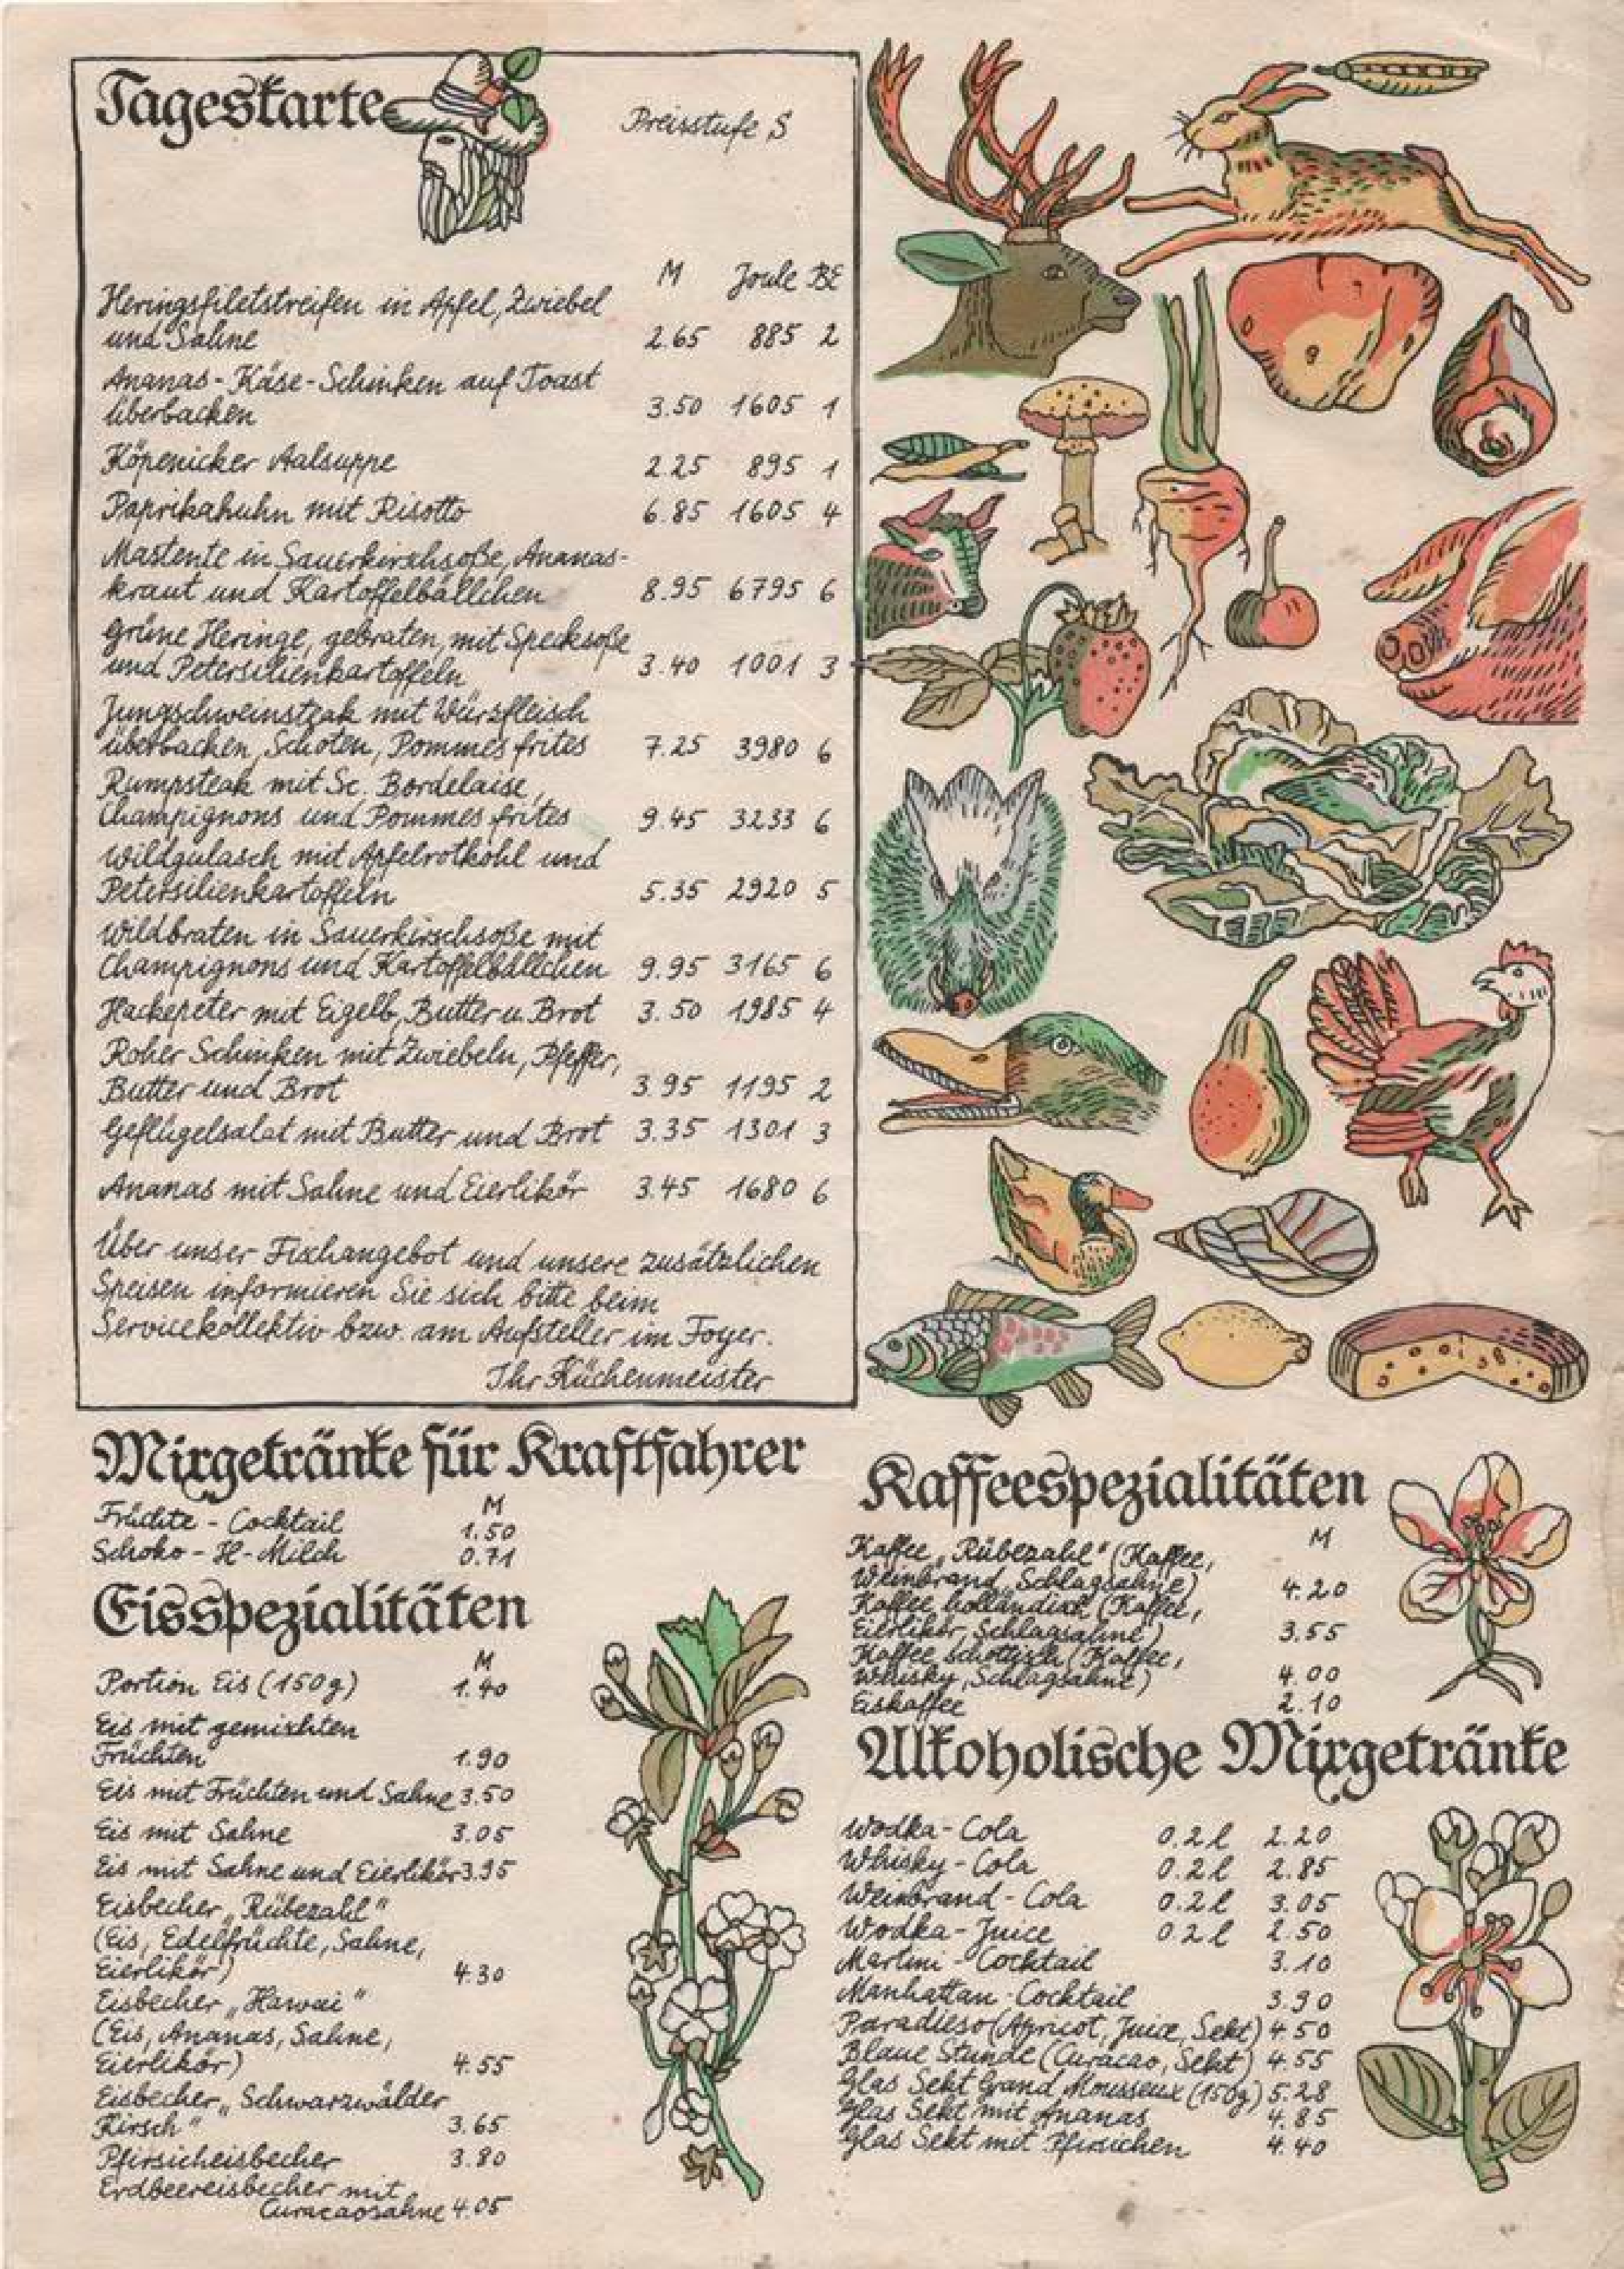 Tageskarte
Preisstufe S
M Joule BE
Heringsfiletstreifen in Apfel, Zwiebel
und Sahne 2.65 885 2
Ananas-Käse-Schinken auf Toast
überbacken 3.50 1605 1
Köpenicker Aalsuppe 2.25 895 1
Paprikahuhn mit Risotto 6.85 1605 4
Mastente in Sauerkirschsoße, Ananas-
kraut und Kartoffelbällchen 8.95 6795 6
Grüne Heringe, gebraten, mit Specksoße
und Petersilienkartoffeln 3.40 1001 3
Jungschweinsteak mit Würzfleisch
überbacken, Schoten, Pommes frites 7.25 3980 6
Rumpsteak mit Sc. Bordelaise,
Champignons und Pommes frites 9.45 3233 6
Wildgulasch mit Apfelrotkohl und
Petersilienkartoffeln 5.35 2920 5
Wildbraten in Sauerkirschsoße mit
Champignons und Kartoffelbällchen 9.95 3165 6
Hackepeter mit Eigelb, Butter u. Brot 3.50 1985 4
Roher Schinken mit Zwiebeln, Pfeffer,
Butter und Brot 3.95 1195 2
Geflügelsalat mit Butter und Brot 3.35 1301 3
Ananas mit Sahne und Eierlikör 3.45 1680 6
Über unser Fischangebot und unsere zusätzlichen
Speisen informieren Sie sich bitte beim
Servicekollektiv bzw. am Aufsteller im Foyer.
Ihr Küchenmeister
Mixgetränke für Kraftfahrer
M
Früchte-Cocktail 1.50
Schoko-H-Milch 0.71
Eisspezialitäten
M
Portion Eis (150g) 1.40
Eis mit gemischten
Früchten 1.90
Eis mit Früchten und Sahne 3.50
Eis mit Sahne 3.05
Eis mit Sahne und Eierlikör 3.95
Eisbecher „Rübezahl"
(Eis, Edelfrüchte, Sahne,
Eierlikör) 4.30
Eisbecher „Hawai"
(Eis, Ananas, Sahne,
Eierlikör) 4.55
Eisbecher „Schwarzwälder
Kirsch" 3.65
Pfirsicheisbecher 3.80
Erdbeereisbecher mit
Curacaosahne 4.05
Kaffeespezialitäten
M
Kaffee „Rübezahl" (Kaffee,
Weinbrand, Schlagsahne) 4.20
Kaffee holländisch (Kaffee,
Eierlikör, Schlagsahne) 3.55
Kaffee schottisch (Kaffee,
Whisky, Schlagsahne) 4.00
Eiskaffee 2.10
Alkoholische Mixgetränke
Wodka-Cola 0.2 l 2.20
Whisky-Cola 0.2 l 2.85
Weinbrand-Cola 0.2 l 3.05
Wodka-Juice 0.2 l 2.50
Martini-Cocktail 3.10
Manhattan-Cocktail 3.90
Paradieso (Apricot, Juice, Sekt) 4.50
Blaue Stunde (Curacao, Sekt) 4.55
Glas Sekt Grand Mousseux (150g) 5.28
Glas Sekt mit Ananas 4.85
Glas Sekt mit Pfirsichen 4.40